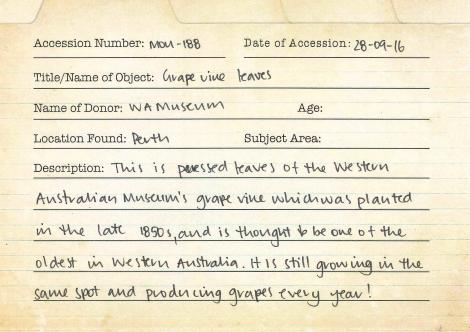 Accession Number: MOU-188 Date of Accession: 28-09-16
Title/Name of Object: Grape vine leaves
Name of Donor: WA Museum Age:
Location Found: Perth Subject Area:
Description: This is pressed leaves of the Western
Australian Museum's grape vine which was planted
in the late 1850s, and is thought to be one of the
oldest in Western Australia. It is still growing in the
same spot and producing grapes every year!